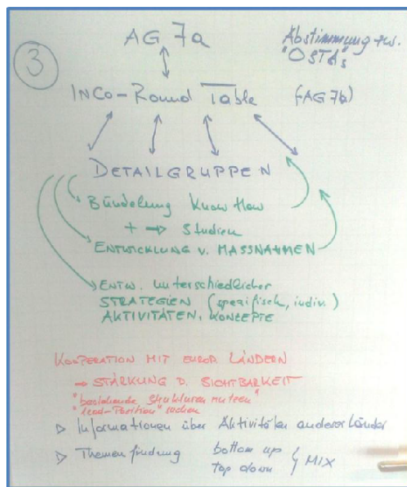 3
AG 7a
Abstimmung zw.
"OSTAs
INCO-Round Table (-AG7b)
DETAILGRUPPEN
Bündelung Know How
+ → Studien
ENTWICKLUNG V. MASSNAHMEN
ENTW. unterschiedlicher
STRATEGIEN (spezifisch, indiv.)
AKTIVITÄTEN, KONZEPTE
KOOPERATION MIT EUROP. LÄNDERN
→ STÄRKUNG D. SICHTBARKEIT
"bestehende Strukturen nutzen"
"Lead-Position"
▷ Informationen über Aktivitäten anderer Länder
▷ Themenfindung bottom up
top down } MIX